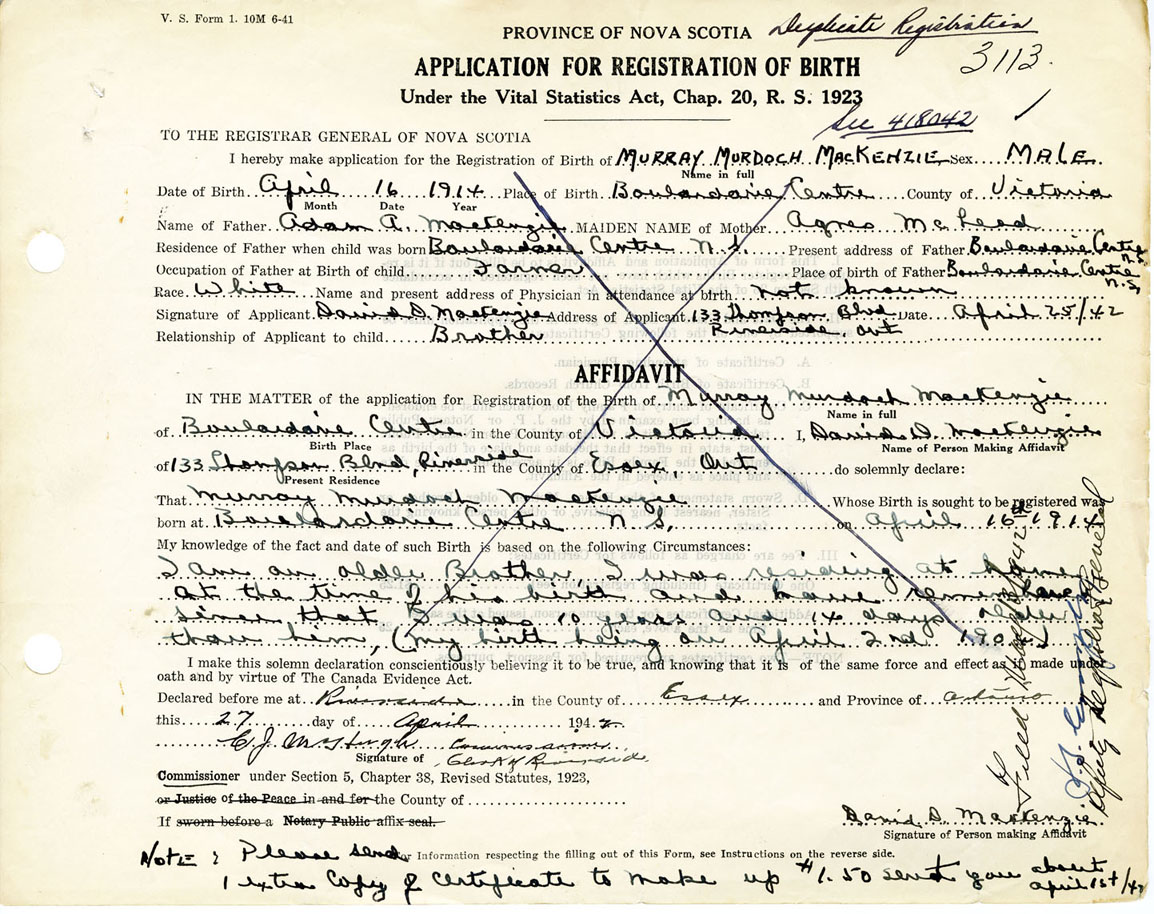 V. S. Form 1. 10M 6-41
PROVINCE OF NOVA SCOTIA Duplicate Registration
3113.
APPLICATION FOR REGISTRATION OF BIRTH
Under the Vital Statistics Act, Chap. 20, R. S. 1923
See 418042
TO THE REGISTRAR GENERAL OF NOVA SCOTIA
I hereby make application for the Registration of Birth of MURRAY MURDOCH MACKENZIE Sex MALE
Name in full
Date of Birth April 16 1914 Place of Birth Boulardarie Centre County of Victoria
Month Date Year
Name of Father Adam A. MacKenzie MAIDEN NAME of Mother Agnes McLeod
Residence of Father when child was born Boulardarie Centre N.S. Present address of Father Boulardarie Centre N.S.
Occupation of Father at Birth of child Farmer Place of birth of Father Boulardarie Centre N.S.
Race White Name and present address of Physician in attendance at birth not known
Signature of Applicant David D. MacKenzie Address of Applicant 133 Thompson Blvd Date April 25/42
Riverside, Ont
Relationship of Applicant to child Brother
AFFIDAVIT
IN THE MATTER of the application for Registration of the Birth of Murray Murdoch MacKenzie
Name in full
of Boulardarie Centre in the County of Victoria I, David D. MacKenzie
Birth Place Name of Person Making Affidavit
of 133 Thompson Blvd, Riverside in the County of Essex, Ont do solemnly declare:
Present Residence
That Murray Murdoch MacKenzie Whose Birth is sought to be registered was
born at Boulardarie Centre N.S. on April 16th 1914
My knowledge of the fact and date of such Birth is based on the following Circumstances:
I am an older Brother, I was residing at home
at the time of his birth and have remembered
since that I was 10 years and 14 days older
than him, (my birth being on April 2nd 1904)
I make this solemn declaration conscientiously believing it to be true, and knowing that it is of the same force and effect as if made under
oath and by virtue of The Canada Evidence Act.
Declared before me at Riverside in the County of Essex and Province of Ontario
this 27 day of April 1942
C. J. McHugh Commissioner
Signature of Clerk of Riverside
Commissioner under Section 5, Chapter 38, Revised Statutes, 1923,
or Justice of the Peace in and for the County of
If sworn before a Notary Public affix seal.
David D. MacKenzie
Signature of Person making Affidavit
For Information respecting the filling out of this Form, see Instructions on the reverse side.
NOTE: Please send
1 extra Copy of Certificate to make up $1.50 sent you about April 1st/42
Filed 1942
Deputy Registrar General